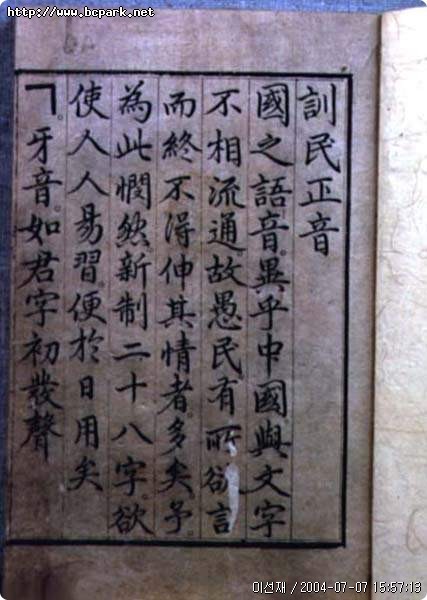 http://www.bcpark.net
訓民正音
國之語音。異乎中國與文字
不相流通。故愚民有所欲言
而終不得伸其情者。多矣。予。
為此憫然。新制二十八字。欲
使人人易習。便於日用矣
ㄱ。牙音。如君字初發聲
이선재 / 2004-07-07 15:57:13